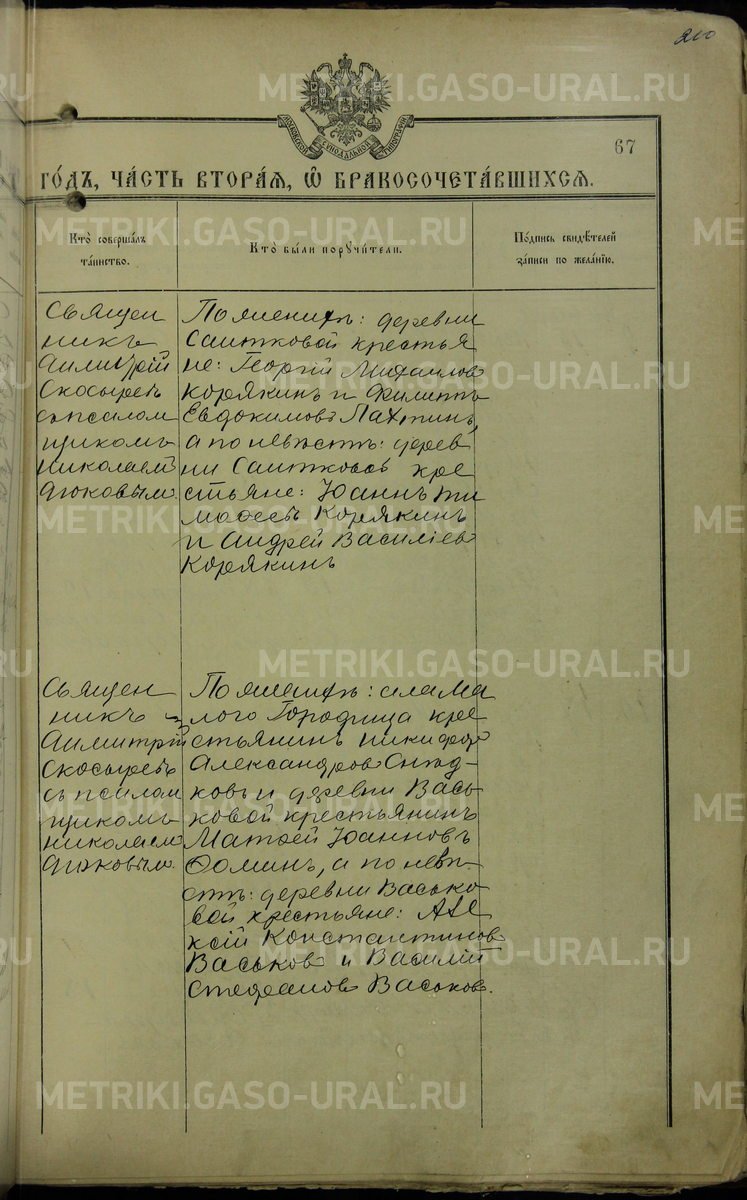 200
МОСКОВСКОЙ СѴНОДАЛЬНОЙ ТИПОГРАФІИ
67
ГО́ДЪ, ЧА́СТЬ ВТОРА́Я, Ѿ БРАКОСОЧЕТА́ВШИХСЯ.
Кто̀ соверша́лъ
та́инство.
Кто̀ бы́ли поручи́тели.
По́дпись свидѣ́телей
за́писи по жела́нію.
Священ
никъ
Димитрій
Скосыревъ
съ псалом
щикомъ
Николаемъ
Дюковым
По женихѣ: деревни
Саитковой крестья
не: Георгій Михаилов
Корякинъ и Филиппъ
Евдокимовъ Лахтинъ,
а по невѣстѣ: дерев
ни Саитковой кре
стьяне: Іоаннъ Ти
мофеевъ Корякинъ
и Андрей Василіев
Корякинъ
Священ
никъ
Димитрій
Скосыревъ
съ псалом
щикомъ
Николаем
Дюковым.
По женихѣ: села Ма
лого Городища кре
стьянинъ Никифор
Александров
ковъ и деревни Вась
ковой крестьянинъ
Матѳей Іоанновъ
Ѳоминъ, а по невѣ
стѣ: деревни Васько
вой крестьяне: Але
ксій Константинов
Васьков и Василій
Стефанов Васьков.
METRIKI.GASO-URAL.RU